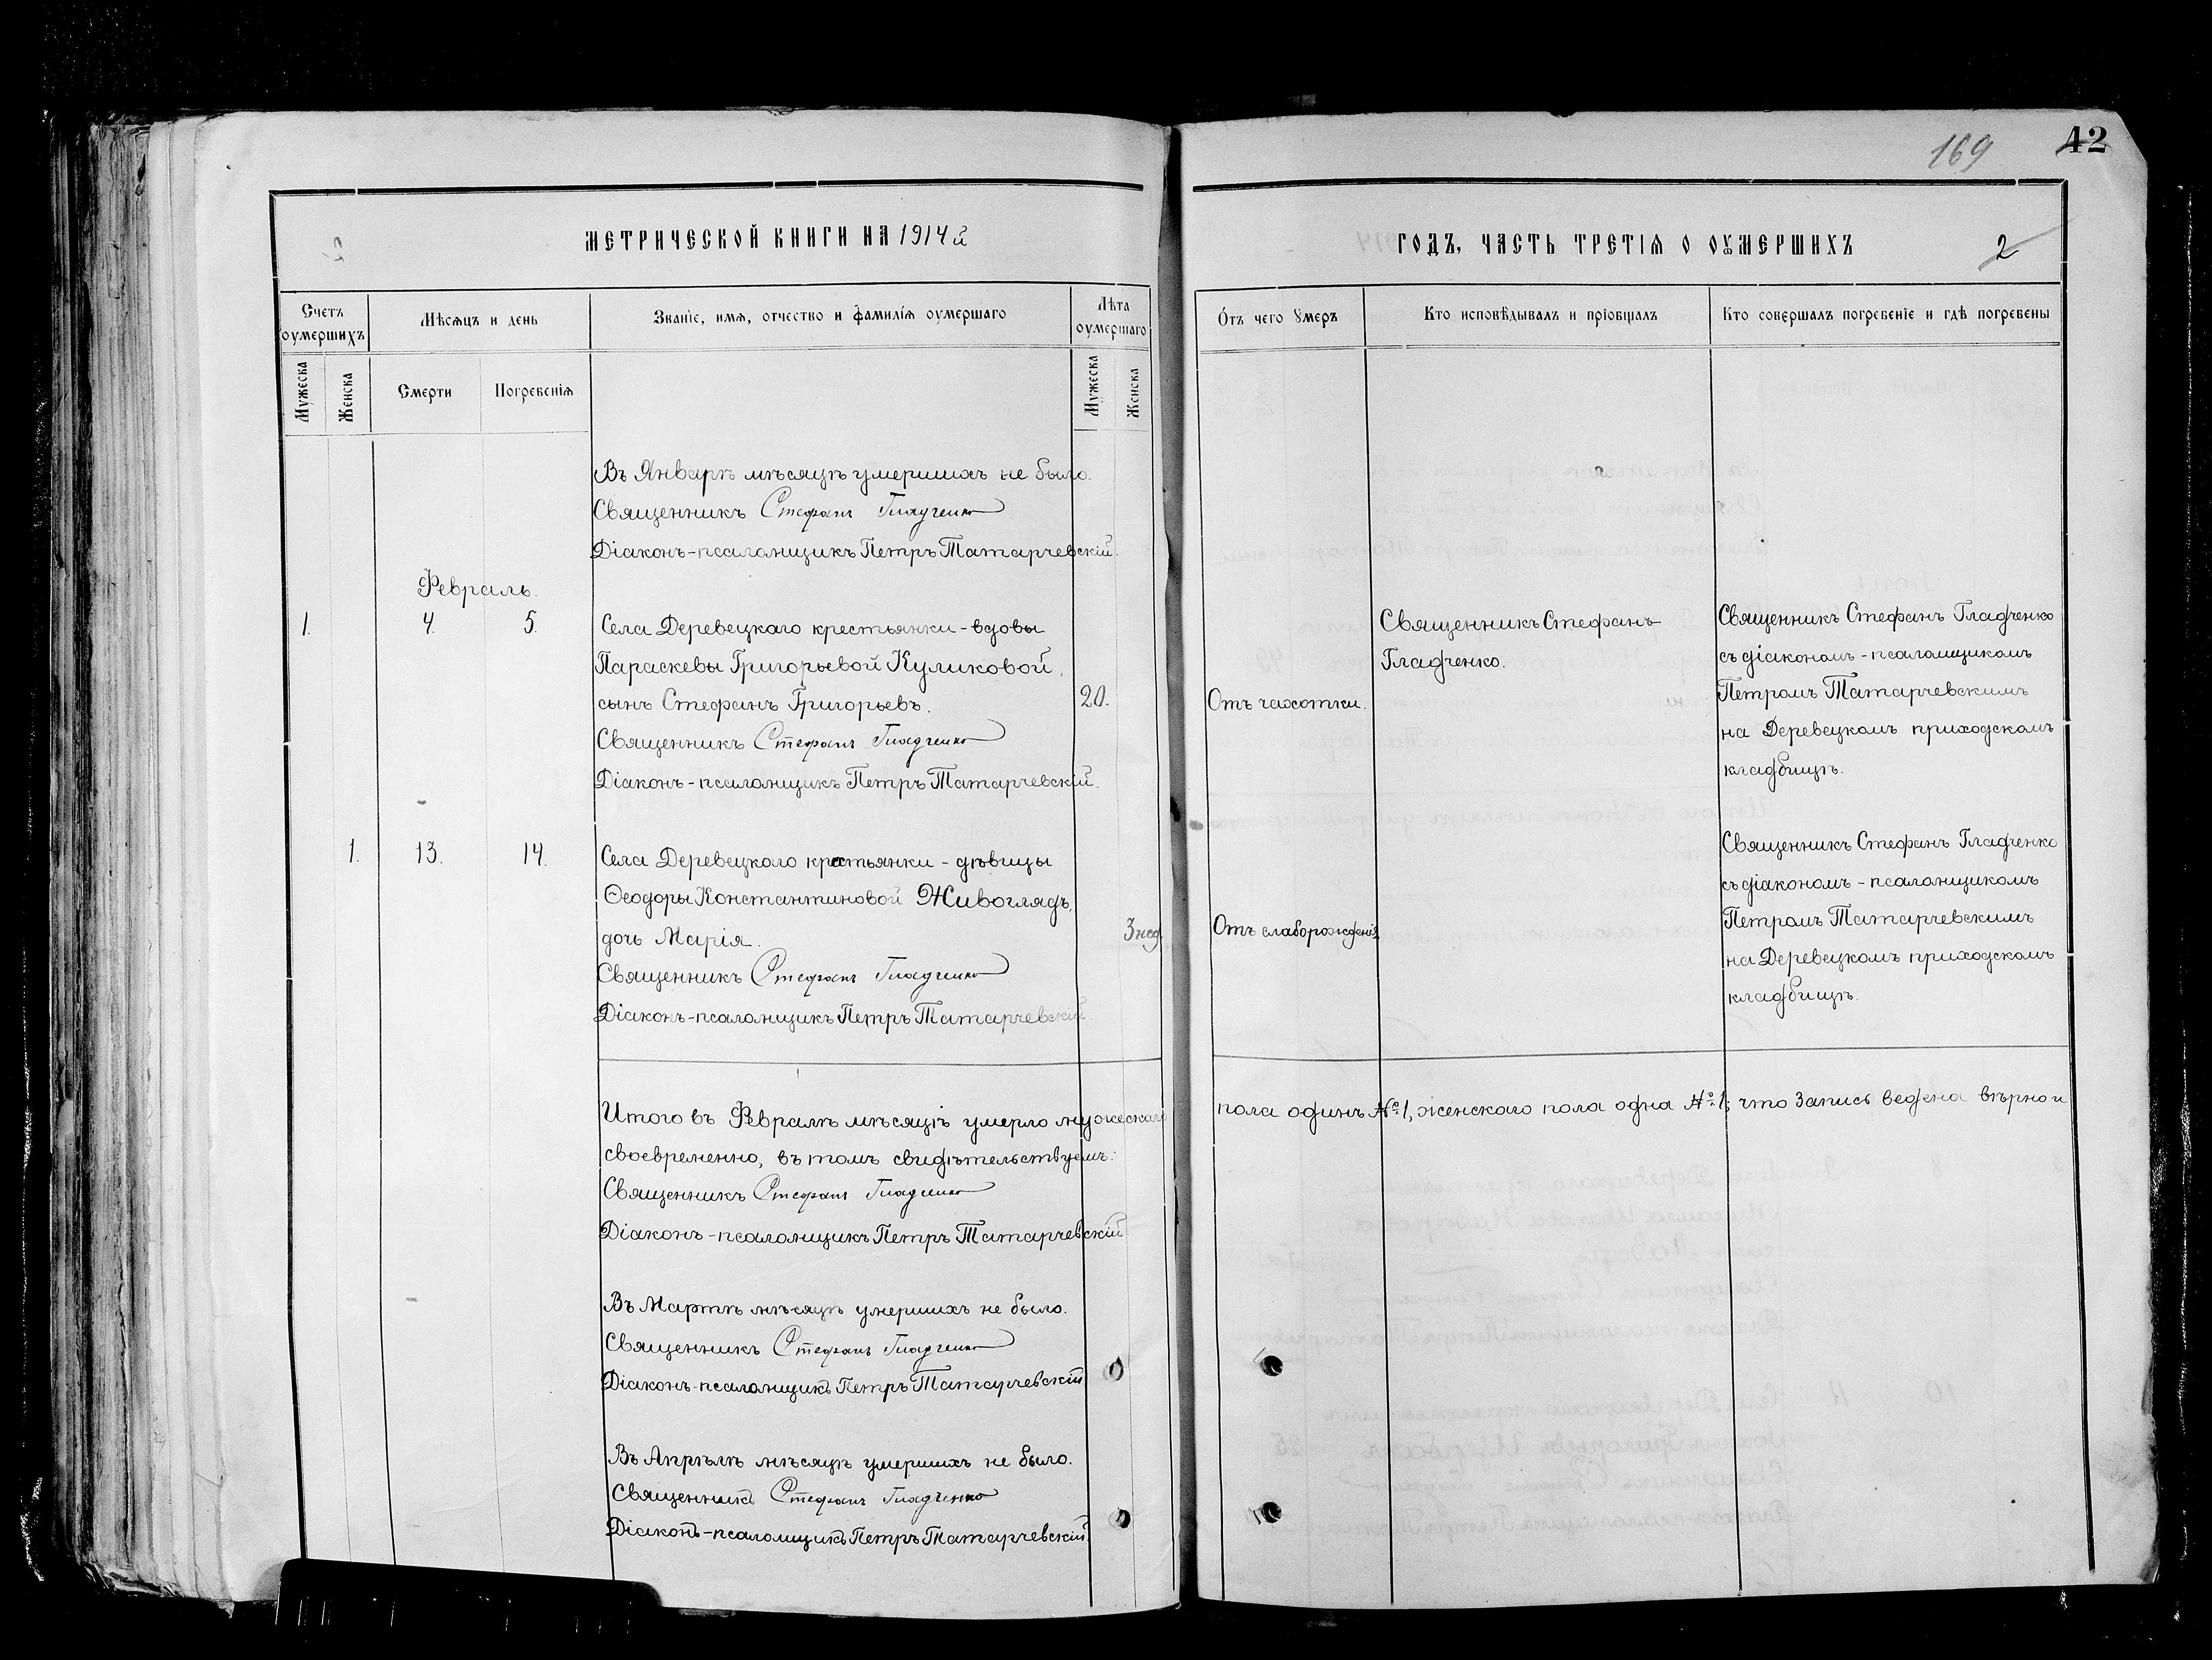 169
42
МЕТРИЧЕСКОЙ КНИГИ НА 1914й
ГОДЪ, ЧАСТЬ ТРЕТІѦ О ОУМЕРШИХЪ
2
Счетъ оумершихъ
Мѣсѧцъ и день
Званїе, имѧ, отчество и фамилїѧ оумершаго
Лѣта оумершаго
Ѿтъ чего ꙋмеръ
Кто исповѣдывалъ и прїобщалъ
Кто совершалъ погребенїе и гдѣ погребены
Мужеска
Женска
Смерти
Погребенїѧ
Мужеска
Женска
Въ Январѣ мѣсяцѣ умершихъ не было.
Священникъ Стефанъ Гладченко
Діаконъ-псаломщикъ Петръ Татарчевскій.
Февраль.
1.
4.
5.
Села Деревецкаго крестьянки-вдовы
Параскевы Григорьевой Куликовой,
сынъ Стефанъ Григорьевъ.
20.
Священникъ Стефанъ Гладченко
Діаконъ-псаломщикъ Петръ Татарчевскій.
Отъ чахотки.
Священникъ Стефанъ
Гладченко.
Священникъ Стефанъ Гладченко
съ діакономъ-псаломщикомъ
Петромъ Татарчевскимъ
на Деревецкомъ приходскомъ
кладбищѣ.
1.
13.
14.
Села Деревецкаго крестьянки-дѣвицы
Ѳеодоры Константиновой Живоглядъ,
дочь Марія.
3 нед.
Священникъ Стефанъ Гладченко
Діаконъ-псаломщикъ Петръ Татарчевскій.
Отъ слаборожденія
Священникъ Стефанъ Гладченко
съ діакономъ-псаломщикомъ
Петромъ Татарчевскимъ
на Деревецкомъ приходскомъ
кладбищѣ.
Итого въ Февралѣ мѣсяцѣ умерло мужескаго
пола одинъ №1, женскаго пола одна №1; что запись ведена вѣрно и
своевременно, въ томъ свидѣтельствуемъ:
Священникъ Стефанъ Гладченко
Діаконъ-псаломщикъ Петръ Татарчевскій
Въ Мартѣ мѣсяцѣ умершихъ не было.
Священникъ Стефанъ Гладченко
Діаконъ-псаломщикъ Петръ Татарчевскій
Въ Апрѣлѣ мѣсяцѣ умершихъ не было.
Священникъ Стефанъ Гладченко
Діаконъ-псаломщикъ Петръ Татарчевскій